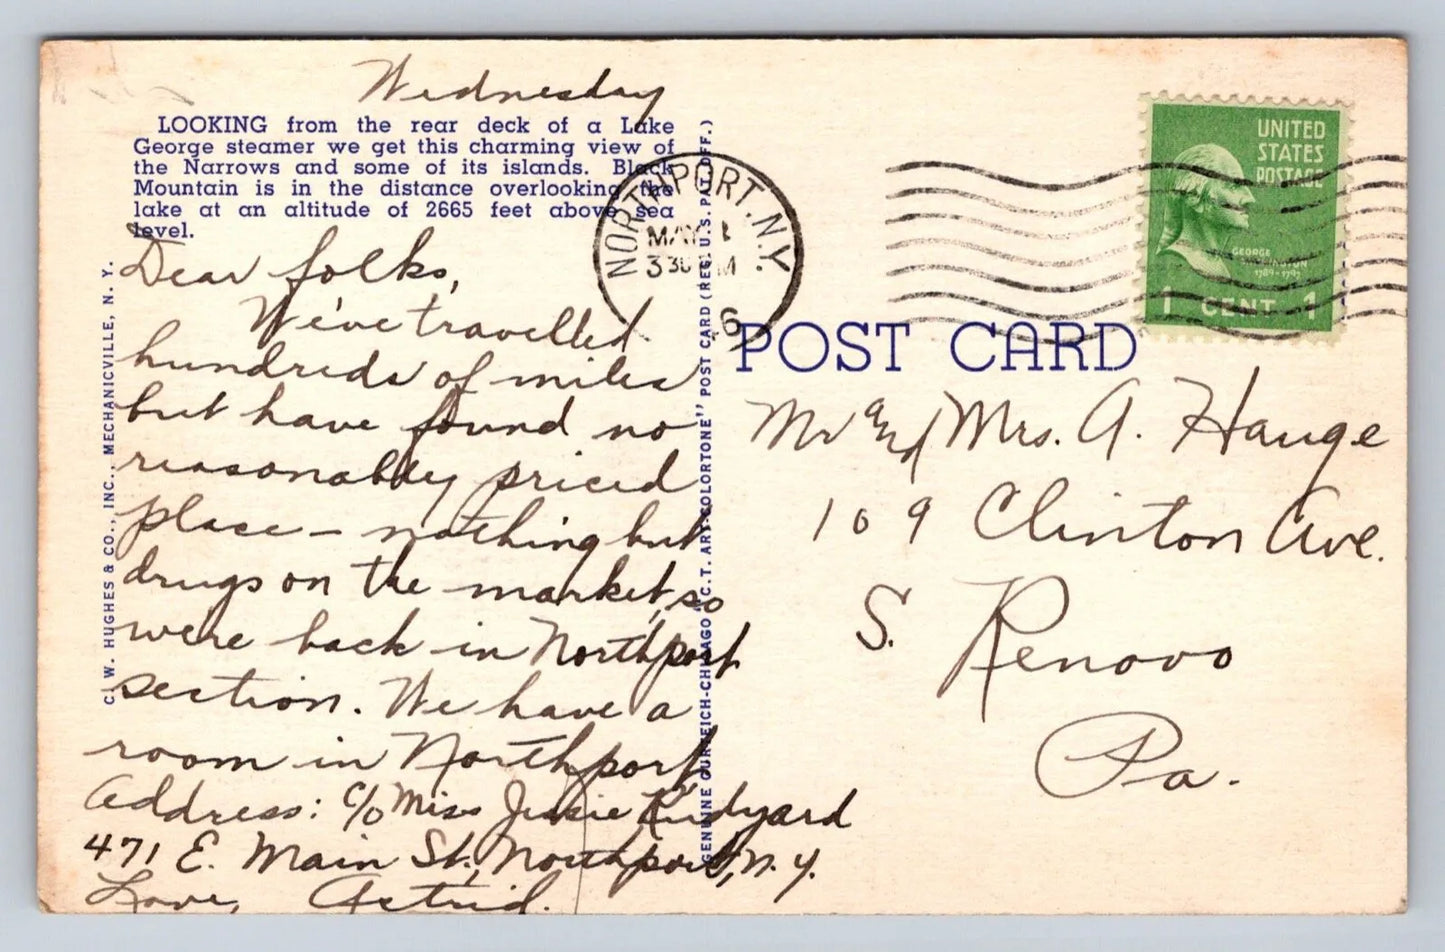 Wednesday
LOOKING from the rear deck of a Lake
George steamer we get this charming view of
the Narrows and some of its islands. Black
Mountain is in the distance overlooking the
lake at an altitude of 2665 feet above sea
level.
Dear folks,
We've travelled
hundreds of miles
but have found no
reasonably priced
place - nothing but
drugs on the market, so
were back in Northport
section. We have a
room in Northport,
Address: c/o Miss Jessie
471 E. Main St., Northport, N.Y.
Love, Astrid.
C. W. HUGHES & CO., INC., MECHANICVILLE, N. Y.
GENUINE CURTEICH-CHICAGO "C.T. ART-COLORTONE" POST CARD (REG. U.S. PAT. OFF.)
NORTHPORT, N.Y.
MAY
3 30 PM
6
UNITED
STATES
POSTAGE
GEORGE
WASHINGTON
1789-1797
1 CENT 1
POST CARD
Mr and Mrs. A. Hauge
109 Clinton Ave.
S. Renovo
Pa.